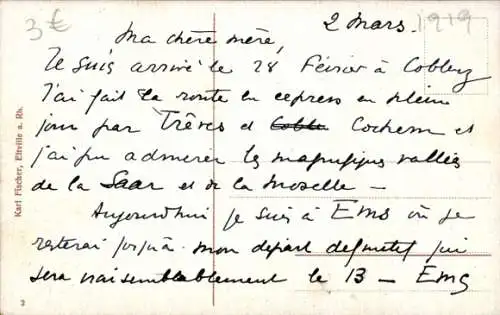 3€
2 Mars. 1919
Ma chère mère,
Je suis arrivé le 28 Février à Coblenz
J'ai fait la route en express en plein
jour par Trêves et Coble Cochem et
j'ai pu admirer les magnifiques vallées
de la Saar et de la Moselle -
Aujourd'hui je suis à Ems où je
resterai jusqu'à mon départ définitif qui
sera vraisemblablement le 13 - Ems
Karl Fischer, Eltville a. Rh.
3